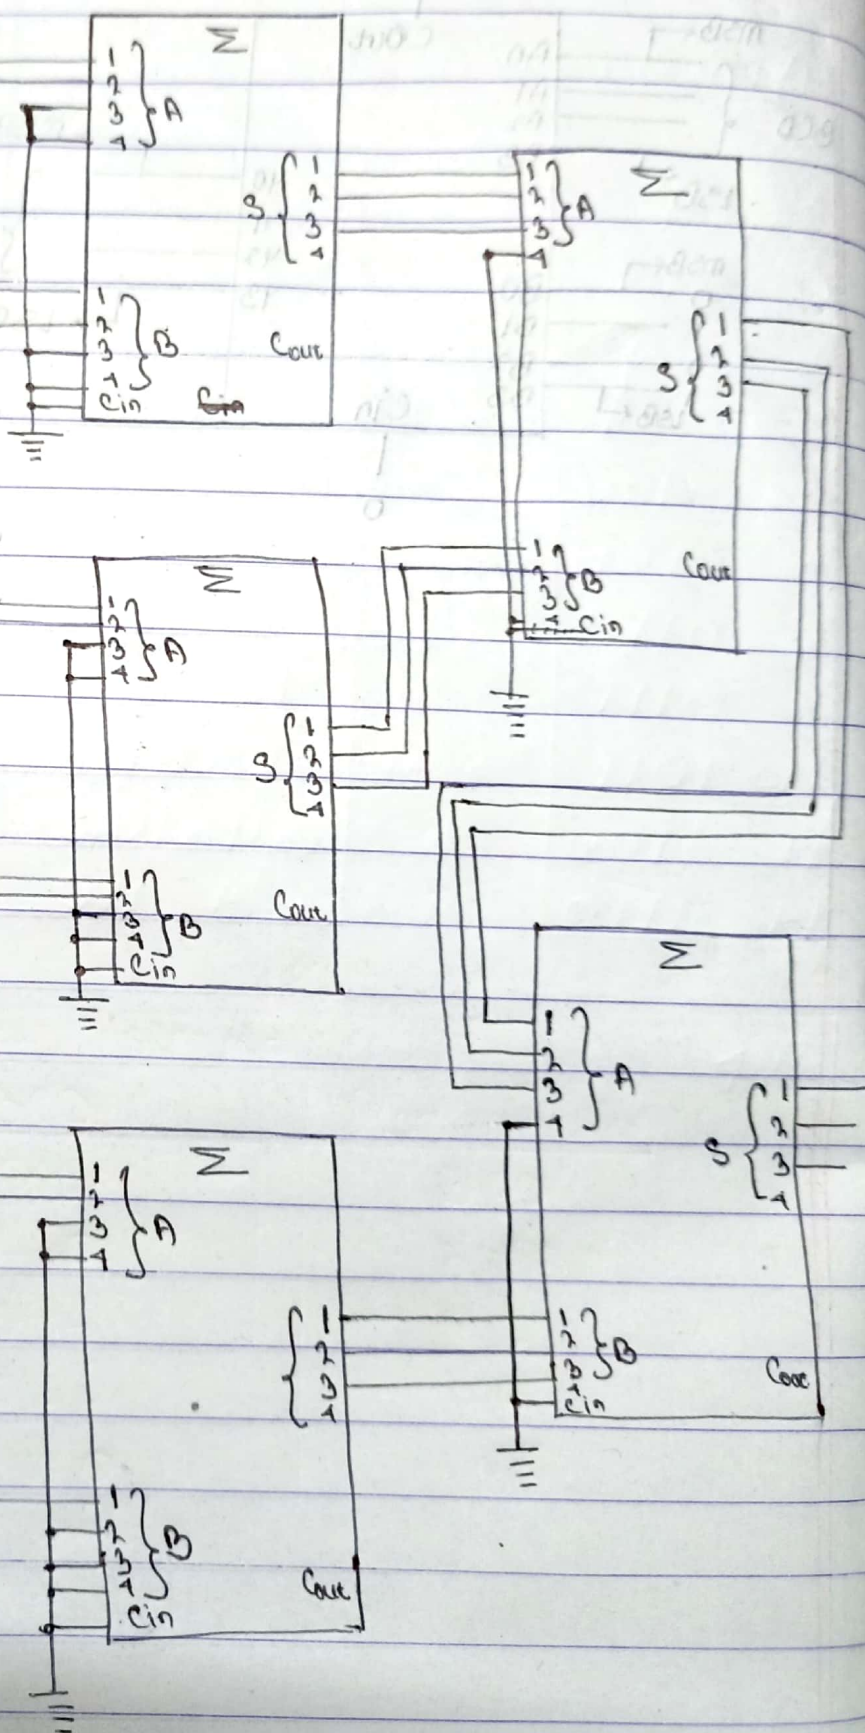 Σ
1
2
3
4
A
S
1
2
3
4
1
2
3
4
B
Cin
Cout
Σ
1
2
3
4
A
S
1
2
3
4
1
2
3
4
B
Cin
Cout
Σ
1
2
3
4
A
S
1
2
3
4
1
2
3
4
B
Cin
Cout
Σ
1
2
3
4
A
S
1
2
3
4
1
2
3
4
B
Cin
Cout
Σ
1
2
3
4
A
1
2
3
4
1
2
3
4
B
Cin
Cout